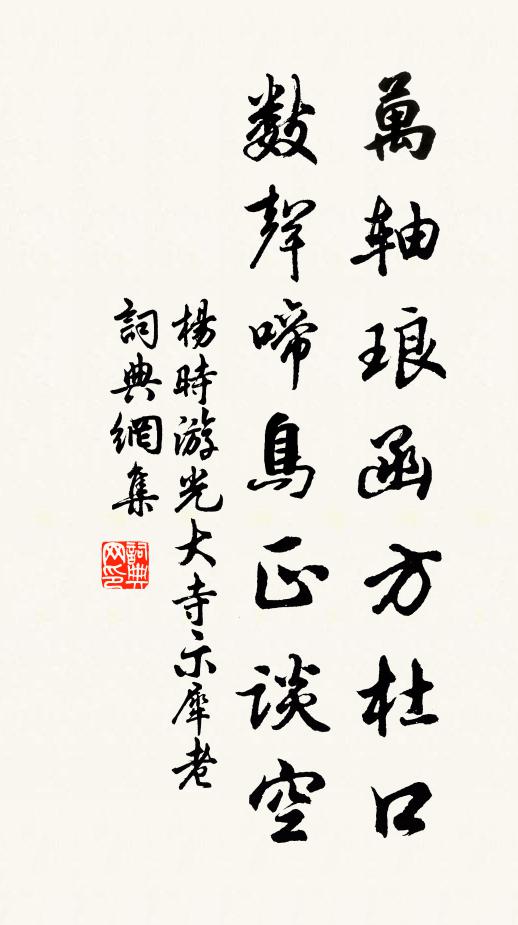 萬軸琅函方杜口
數聲啼鳥正談空
楊時游光大寺示犀老
詞典網集
詞典網印